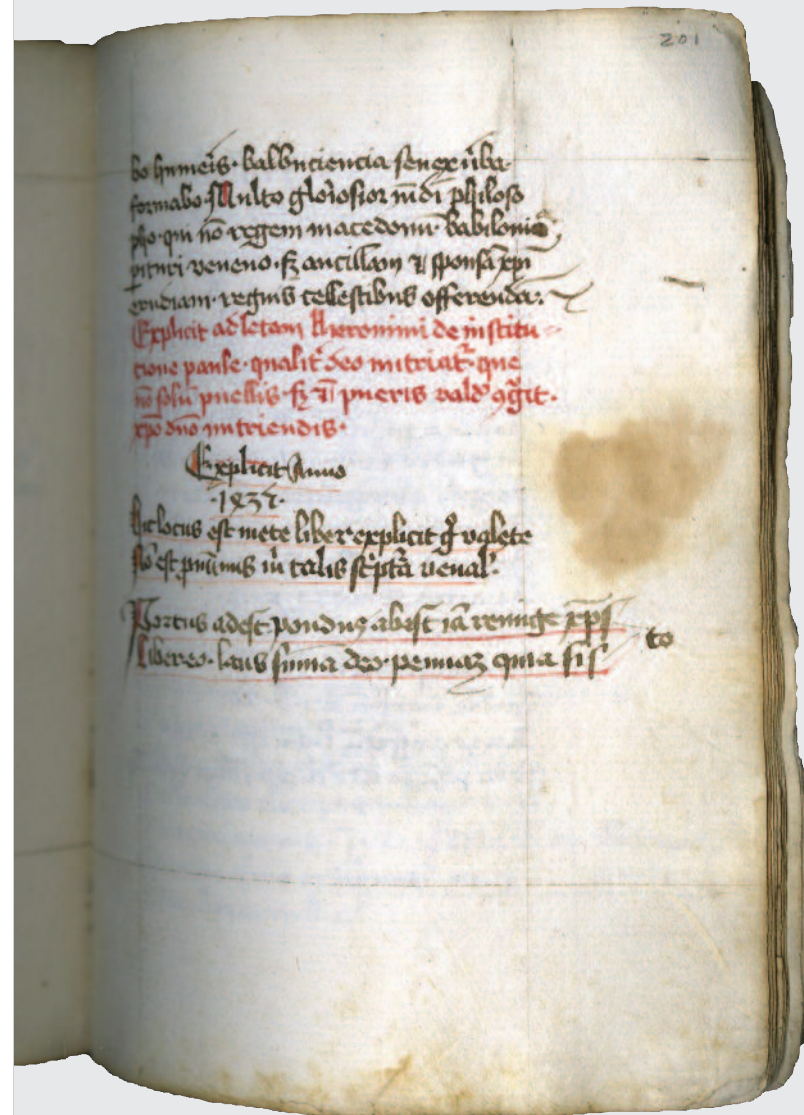 201
bo humeris· balbuciencia senex ùba·
formabo Multo gl'osior mdi philoso
pho· qui nō regem macedonū babilonio
pituri veneno· sz ancillam ⁊ sponsā xpi
erudiam· regnis celestibus offerendā:·
Explicit ad letam Iheronimi de institu=
cione paule· qualit' deo nutriat'· que
nō solū puellis· sz ⁊ pueris vald' ·
xpo dno nutriendis·
Explicit Anno
·1437·
Hic locus est mete liber explicit gͦ valete
Nō est pⁱmus ù talis sc'ptā venal'·
Portus adest pondus abest iā remige xp̄s
to
Libereo· laus sūma deo· pennaꝫ quia sis